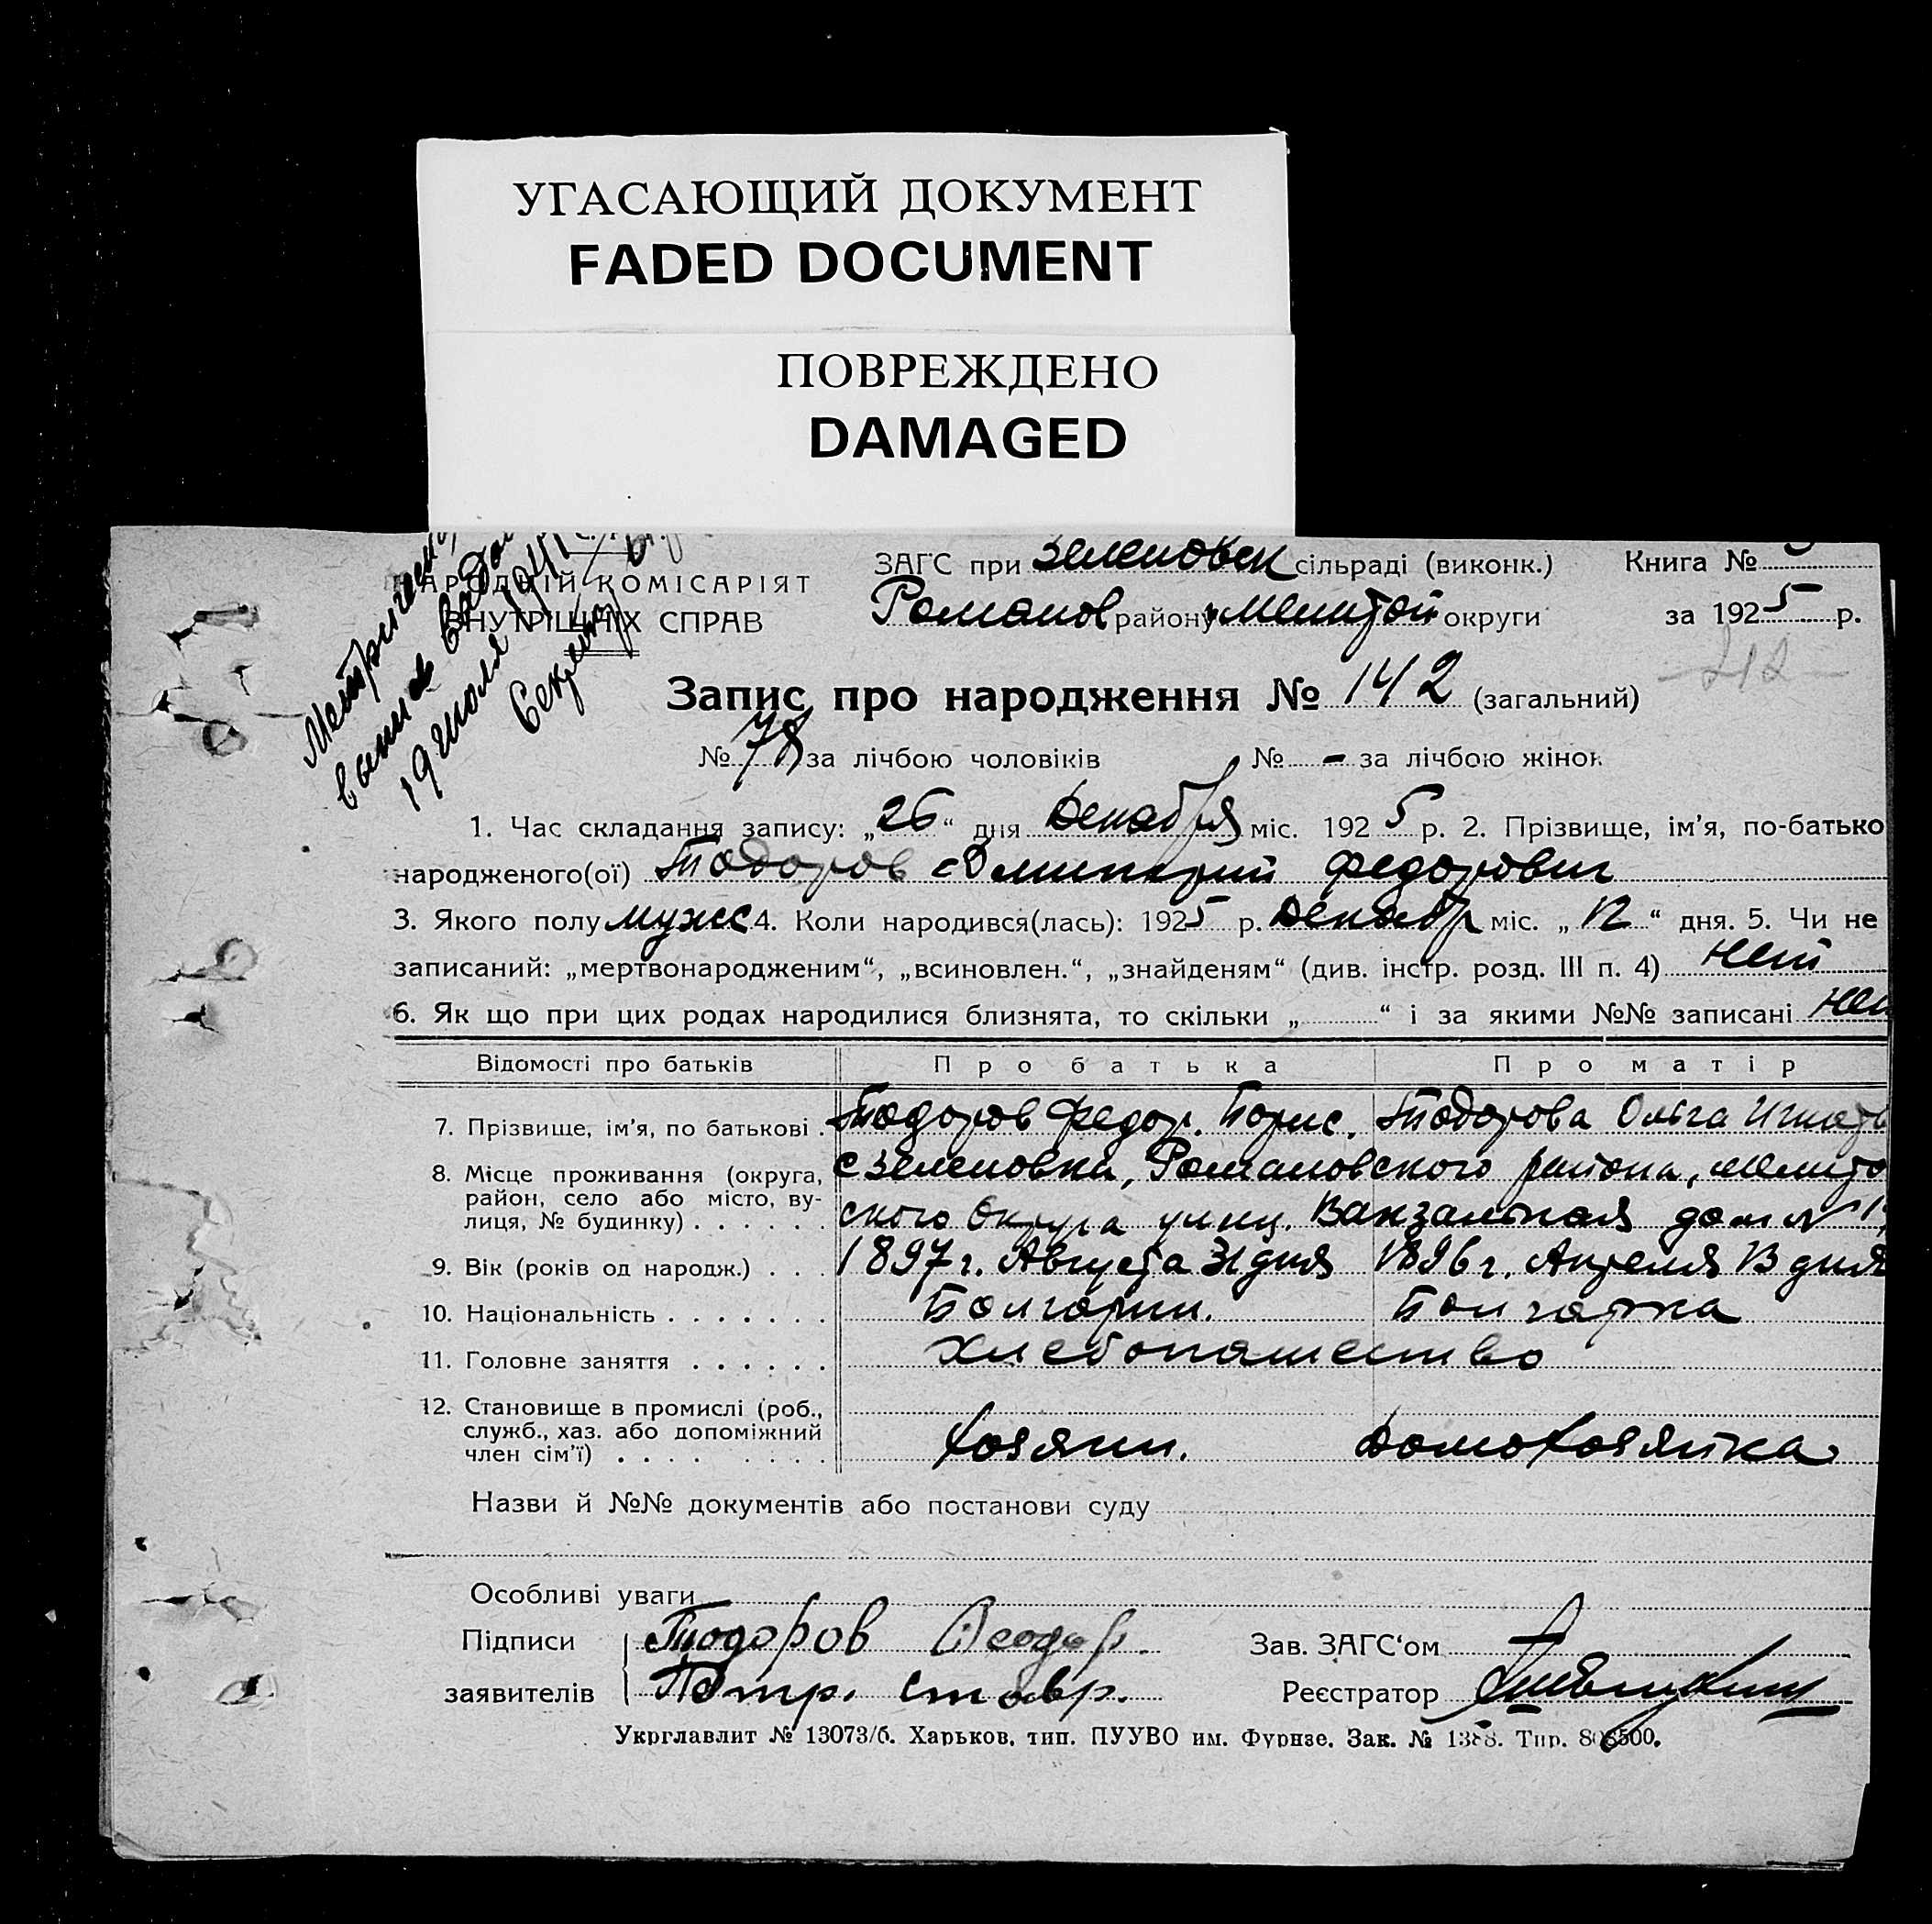 УГАСАЮЩИЙ ДОКУМЕНТ
FADED DOCUMENT
ПОВРЕЖДЕНО
DAMAGED
НАРОДНІЙ КОМІСАРІЯТ
ВНУТРІШНІХ СПРАВ
19 июля 1941
ЗАГС при Зеленовск сільраді (виконк.)
Книга №
Романов району Мелитоп округи
за 1925 р.
212
Запис про народження № 142 (загальний)
№ 78 за лічбою чоловіків № - за лічбою жінок
1. Час складання запису: „26“ дня Декабря міс. 1925 р. 2. Прізвище, ім'я, по-батько
народженого(ої) Тодоров Димитрий Федорович
3. Якого полу мужс 4. Коли народився(лась): 1925 р. Декабр міс. „12“ дня. 5. Чи не
записаний: „мертвонародженим“, „всиновлен.“, „знайденям“ (див. інстр. розд. III п. 4) нет
6. Як що при цих родах народилися близнята, то скільки „ “ і за якими №№ записані нет
Відомості про батьків Про батька Про матір
7. Прізвище, ім'я, по батькові . Тодоров Федор. Борис. Тодорова Ольга Игнать
8. Місце проживання (округа, с Зеленовка, Романовского района, Мелито
район, село або місто, ву-
лиця, № будинку) . . . . . . ского Округа улиц. Вакзальная дом №
9. Вік (років од народж.) . . . 1897 г. Августа 31 дня 1896 г. Апреля 13 дня
10. Національність . . . . . . . Болгарин. Болгарка
11. Головне заняття . . . . . . Хлебопашество
12. Становище в промислі (роб.,
служб., хаз. або допоміжний
член сім'ї) . . . . . . . . Хозяин. Домохозяйка
Назви й №№ документів або постанови суду
Особливі уваги
Підписи Тодоров Феодор. Зав. ЗАГС'ом
заявителів Петр. Ставр. Реєстратор
Укрглавлит № 13073/б. Харьков, тип. ПУУВО им. Фурнзе. Зак. № 1388. Тир.